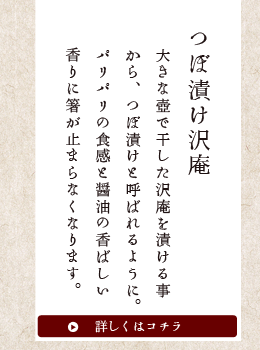 つぼ漬け沢庵
大きな壺で干した沢庵を漬ける事
から、つぼ漬けと呼ばれるように。
パリパリの食感と醤油の香ばしい
香りに箸が止まらなくなります。
詳しくはコチラ